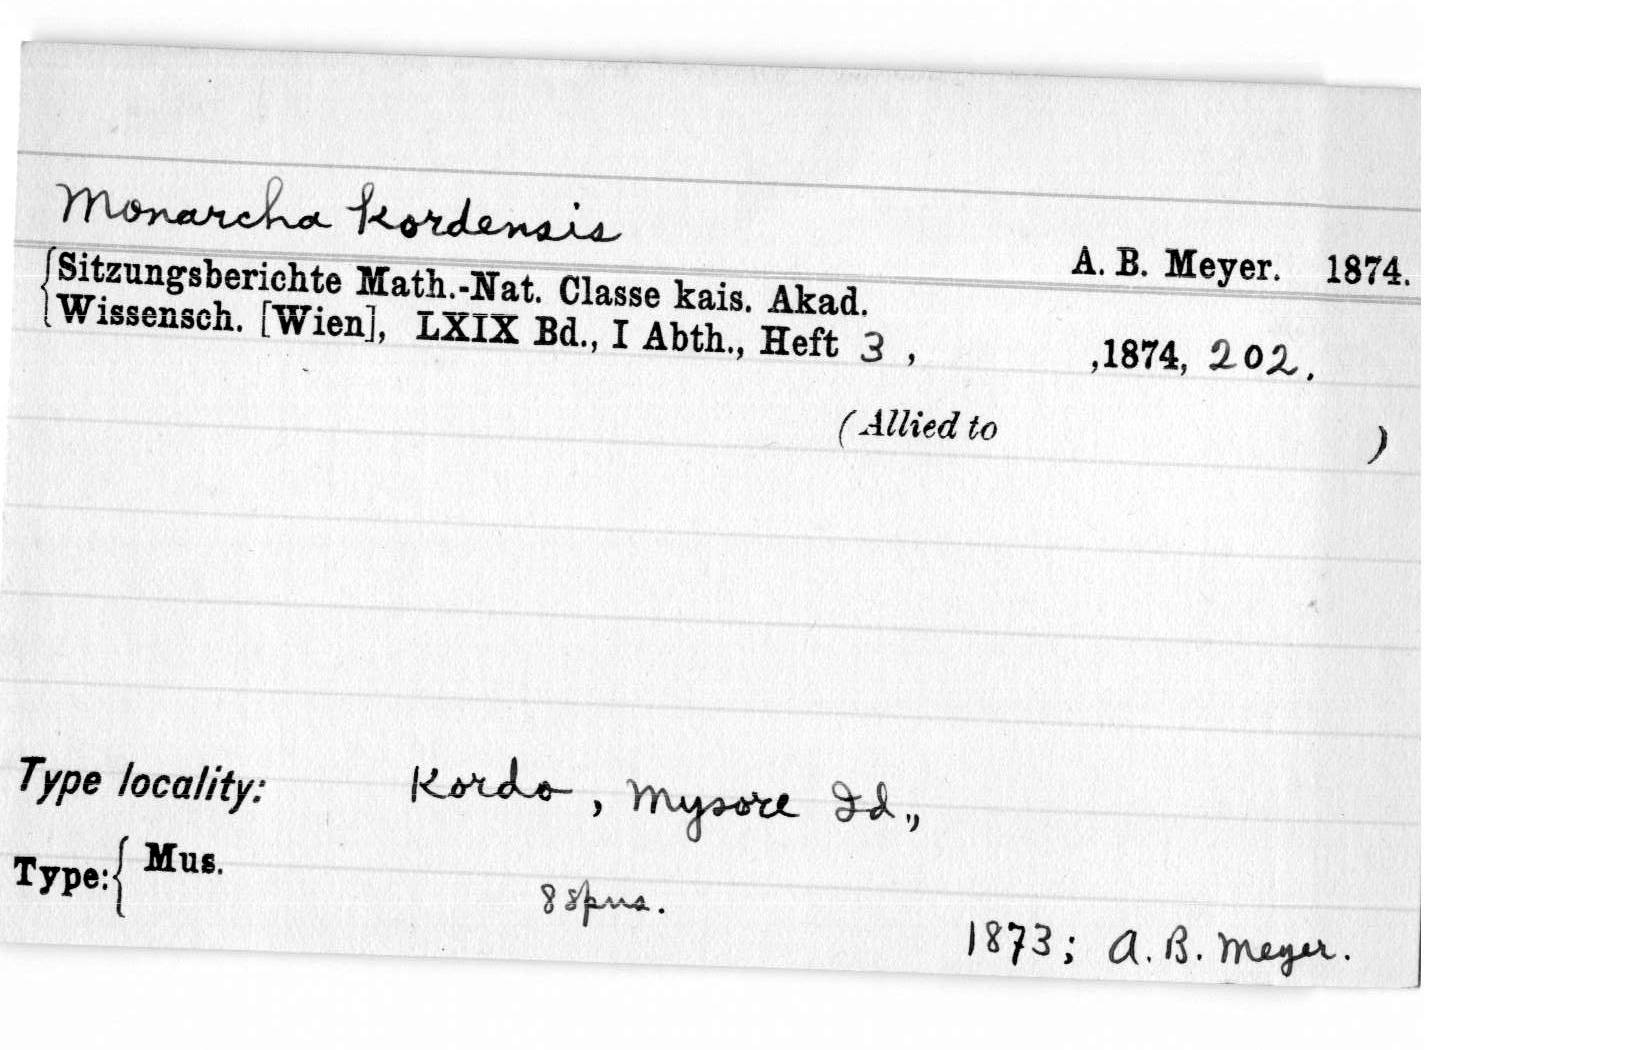 Monarcha kordensis
A. B. Meyer. 1874.
Sitzungsberichte Math.-Nat. Classe kais. Akad.
Wissensch. [Wien], LXIX Bd., I Abth., Heft 3 , ,1874, 202.
(Allied to )
Type locality: Kordo, Mysore Id.,,
Type:{ Mus.
8 spns.
1873; A. B. Meyer.